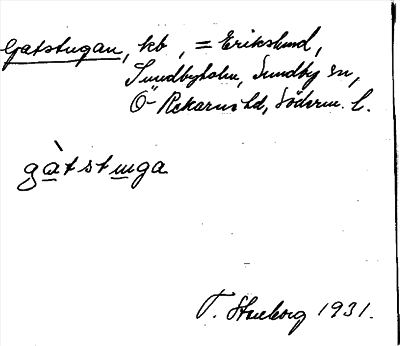 Gatstugan, kb, = Erikslund,
Sundbyholm, Sundby sn,
Ö-Rekarne hd, Söderm. l.
gàtstuga
T. 1931.